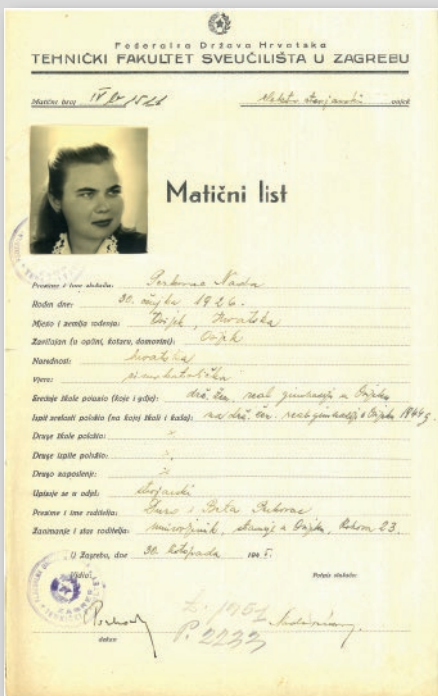 Federalna Država Hrvatska
TEHNIČKI FAKULTET SVEUČILIŠTA U ZAGREBU
Matični broj IV
odjel
Matični list
Prezime i ime slušača: Perkovac Nada
Rođen dne: 30. ožujka 1926.
Mjesto i zemlja rođenja: Osijek, Hrvatska
Zavičajan (u općini, kotaru, domovini): Osijek
Narodnost: hrvatska
Vjera: rimokatolička
Srednje škole polazio (koje i gdje): drž. žen. real. gimnaziju u Osijeku
Ispit zrelosti položio (na kojoj školi i kada): na drž. žen. real. gimnaziji u Osijeku 1944 g.
Druge škole polazio:
Druge ispite položio:
Drugo zaposlenje:
Upisuje se u odjel: strojarski
Prezime i ime roditelja: Perkovac
Zanimanje i stav roditelja: umirovljenik, stanuje u Osijeku, 23.
U Zagrebu, dne 30. listopada 1945.
Vidio: Potpis slušača:
L. 1951
P. 2232
dekan